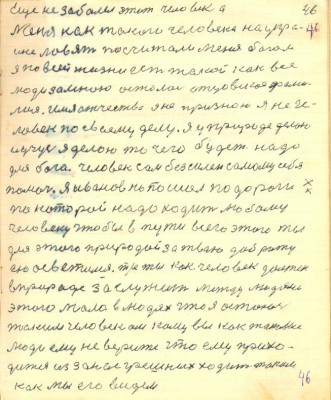 Еще не заболел этот человек а 46
Меня как такого человека на Укра- 46
ине ловят посчитали меня богом
я по всей жизни есть такой как все
люди за мною остался отцовская фами-
лия. имя отчество я не признаю я не че-
ловек по своему делу. я у природе делаю
и учусь я делаю то чего будет надо
для бога. человек сам бессилен самому себя
помоч. Я иванов не пошел по дороги
по которой надо ходит любому
человеку чтобы в пути всего этого ты
для этого природой за твою доброту
ею осветился. ты как человек должен
в природе заслужит между людями
этого мало в людях что я остался
таким человеком кому вы как таковые
люди ему не верите что ему прихо-
дится из за нас грешных ходит таким
как мы его видим 46